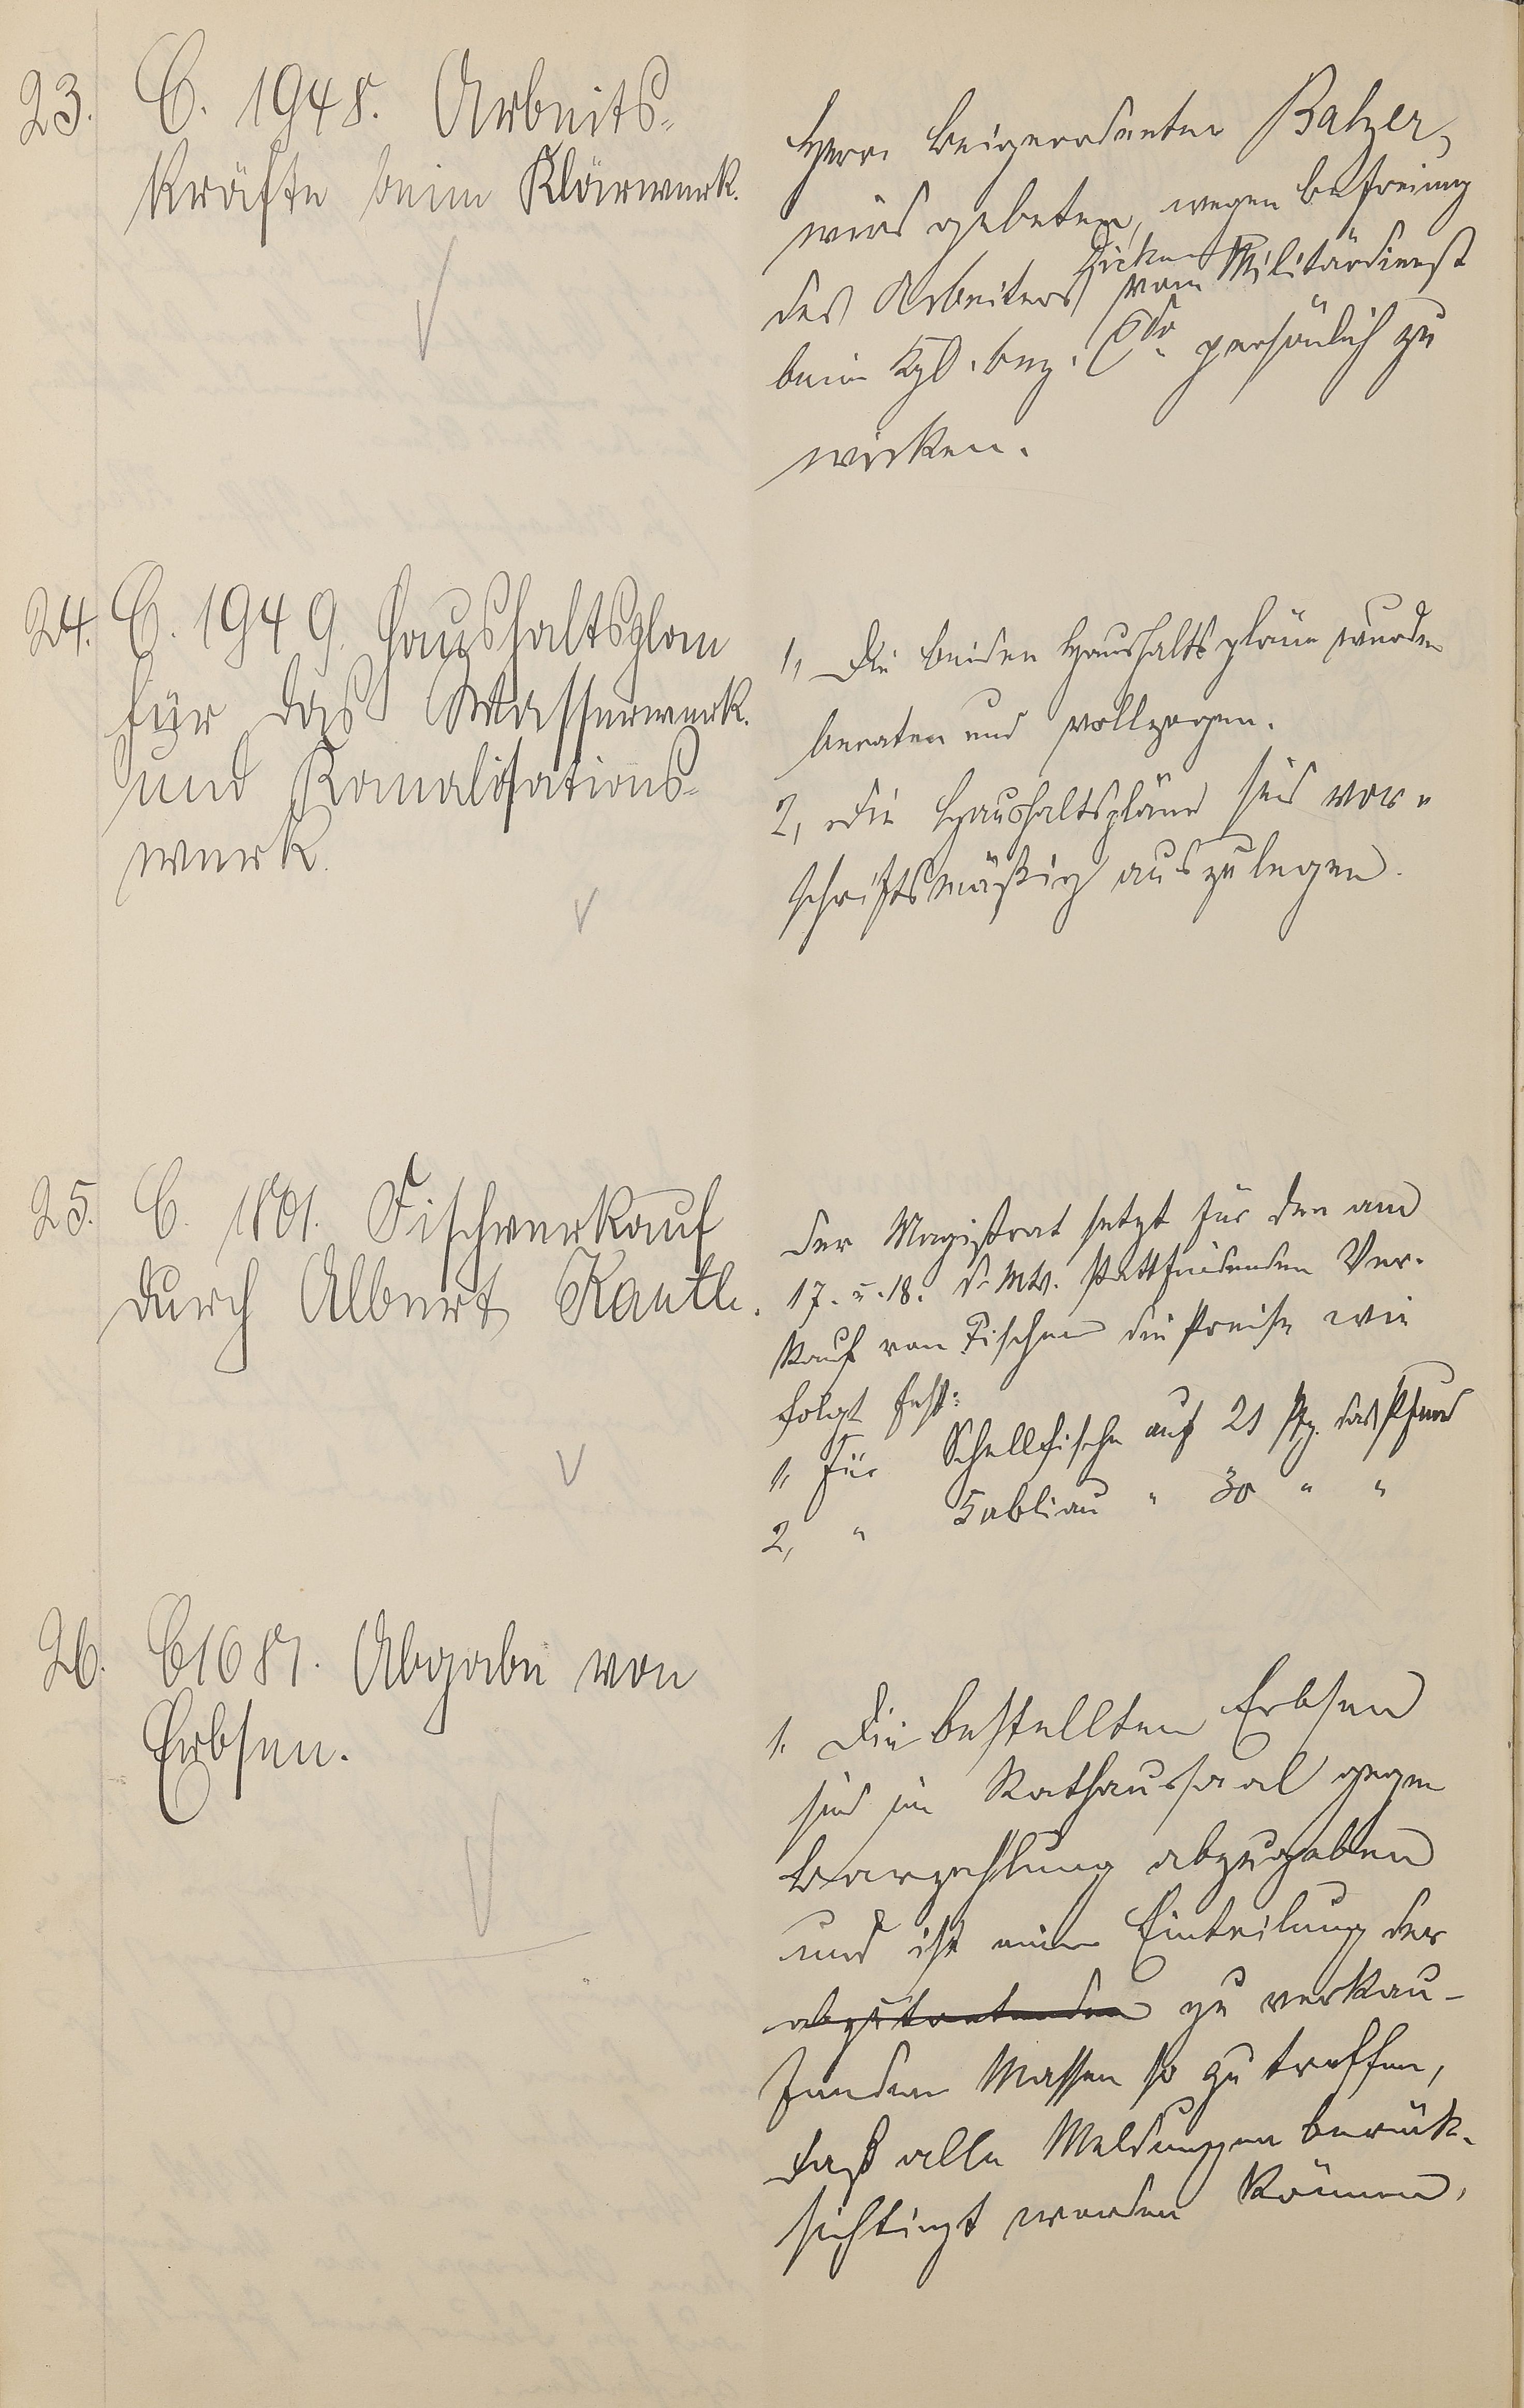 23. C. 1948. Arbeits-
kräfte beim Klärwerk.
Herr Beigeordneter Balzer,
wird gebeten, wegen Befreiung
des Arbeiters vom Militärdienst
beim Kgl. Bez. Cdo. persönlich zu
wirken.
24. C. 1949. Haushaltsplan
für das Wasserwerk.
und Kanalisations-
werk.
1, Die beiden Haushaltspläne wurden
beraten und vollzogen.
2, Die Haushaltspläne sind vor-
schriftsmäßig auszulegen.
25. C. 1801. Fischverkauf
durch Albert Kauth.
Der Magistrat setzt für den am
17. u. 18. d. Mts. stattfindenden Ver-
kauf von Fischen die Preise wie
folgt fest:
1, Für Schellfische auf 21 Pfg. das Pfund
2, " Kabliau " 30 " "
26. C 1687. Abgabe von
Erbsen.
1. Die bestellten Erbsen
sind im Rathaussaal gegen
Barzahlung abzugeben
und ist eine Einteilung der
abzutretenden zu verkau-
fenden Massen so zu treffen,
daß alle Meldungen berück-
sichtigt werden können.